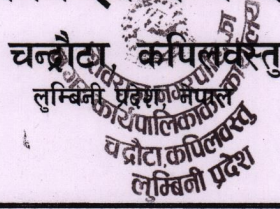 चन्द्रौटा, कपिलवस्तु
लुम्बिनी प्रदेश, नेपाल
नगर कार्यपालिकाको कार्यालय
चन्द्रौटा, कपिलवस्तु
लुम्बिनी प्रदेश